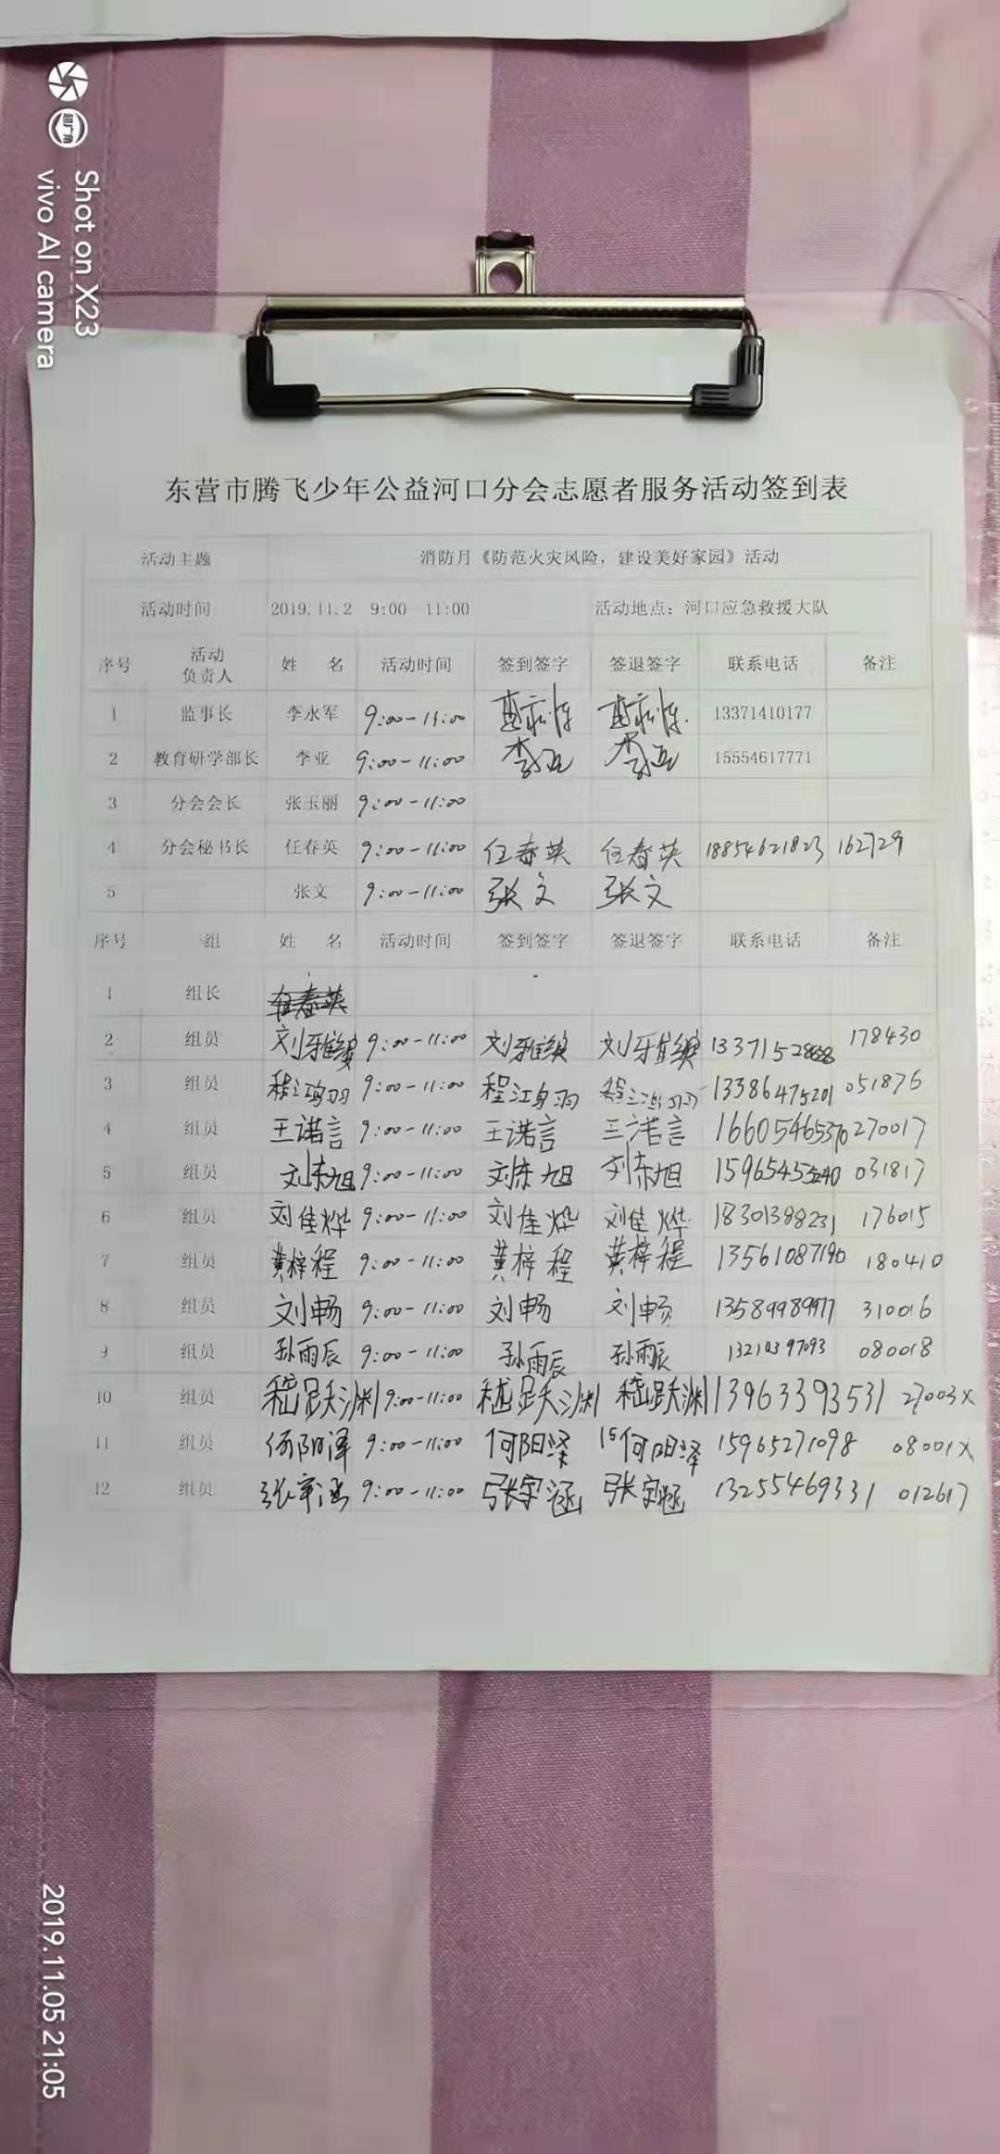 Shot on X23
vivo AI camera
东营市腾飞少年公益河口分会志愿者服务活动签到表
活动主题 消防月《防范火灾风险,建设美好家园》活动
活动时间 2019.11.2 9:00-11:00 活动地点:河口应急救援大队
序号 活动负责人 姓 名 活动时间 签到签字 签退签字 联系电话 备注
1 监事长 李永军 9:00-11:00 13371410177
2 教育研学部长 李亚 9:00-11:00 李亚 李亚 15554617771
3 分会会长 张玉丽 9:00-11:00
4 分会秘书长 任春英 9:00-11:00 任春英 任春英 18854621823 162729
5 张文 9:00-11:00 张文 张文
序号 组 姓 名 活动时间 签到签字 签退签字 联系电话 备注
1 组长 任春英
2 组员 9:00-11:00 178430
3 组员 9:00-11:00 13386475201 051876
4 组员 王诺言 9:00-11:00 王诺言 王诺言 16605465370 270017
5 组员 刘东旭 9:00-11:00 刘东旭 刘东旭 031817
6 组员 刘佳烨 9:00-11:00 刘佳烨 刘佳烨 18301388231 176015
7 组员 黄梓程 9:00-11:00 黄梓程 黄梓程 13561087190 180410
8 组员 刘畅 9:00-11:00 刘畅 刘畅 13589989977 310016
9 组员 孙雨辰 9:00-11:00 孙雨辰 孙雨辰 13210397093 080018
10 组员 嵇跃渊 9:00-11:00 嵇跃渊 嵇跃渊 13963393531 27003X
11 组员 何阳泽 9:00-11:00 何阳泽 何阳泽 15965271098 08001X
12 组员 张宇涵 9:00-11:00 张宇涵 张宇涵 13255469331 012617
2019.11.05 21:05